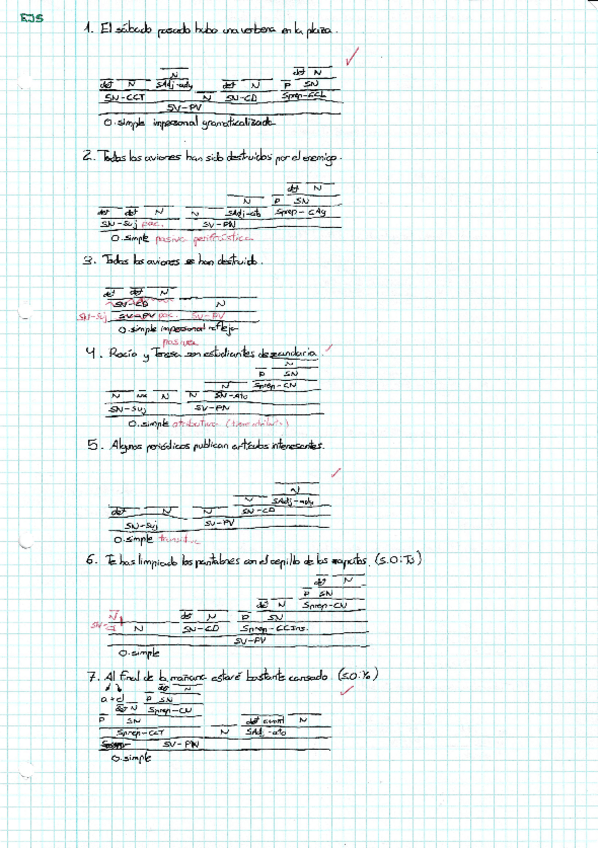 EJ5
1. El sábado pasado hubo una verbena en la plaza.
N
det N
det N SAdj-ady det N P SN
SN-CCT N SN-CD Sprep-CCL
SV-PV
O. simple impersonal gramaticalizada
2. Todos los aviones han sido destruidos por el enemigo.
det N
N P SN
det det N N SAdj-atb Sprep-CAg
SN-Suj pac. SV-PN
O. simple pasiva perifrástica
3. Todos los aviones se han destruido.
det det N
SN-CD N
SN-Suj SV-PV pac. SV-PV
O. simple impersonal refleja
pasiva
4. Rocío y Teresa son estudiantes de secundaria.
N
P SN
N Sprep-CN
N nx N N SN-ato
SN-Suj SV-PN
O. simple atributiva
5. Algunos periódicos publican artículos interesantes.
N
N SAdj-ady
det N N SN-CD
SN-Suj SV-PV
O. simple transitiva
6. Te has limpiado los pantalones con el cepillo de los zapatos. (S.O: Tú)
det N
P SN
det N Sprep-CN
N det N P SN
N SN-CD Sprep-CCIns.
SV-PV
O. simple
7. Al final de la mañana estaré bastante cansado. (S.O: Yo)
det N
a+el P SN
det N Sprep-CN
P SN det cuant N
Sprep-CCT N SAdj-ato
SV-PN
O. simple